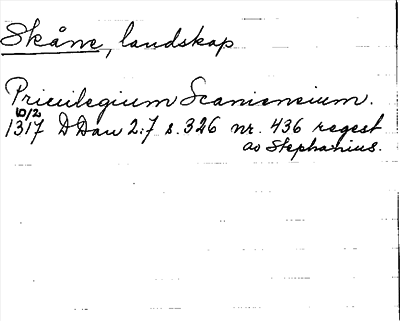 Skåne, landskap
Privilegium Scaniensium.
10/2
1317 DDan 2:7 s. 326 nr. 436 regest
av Stephanius.